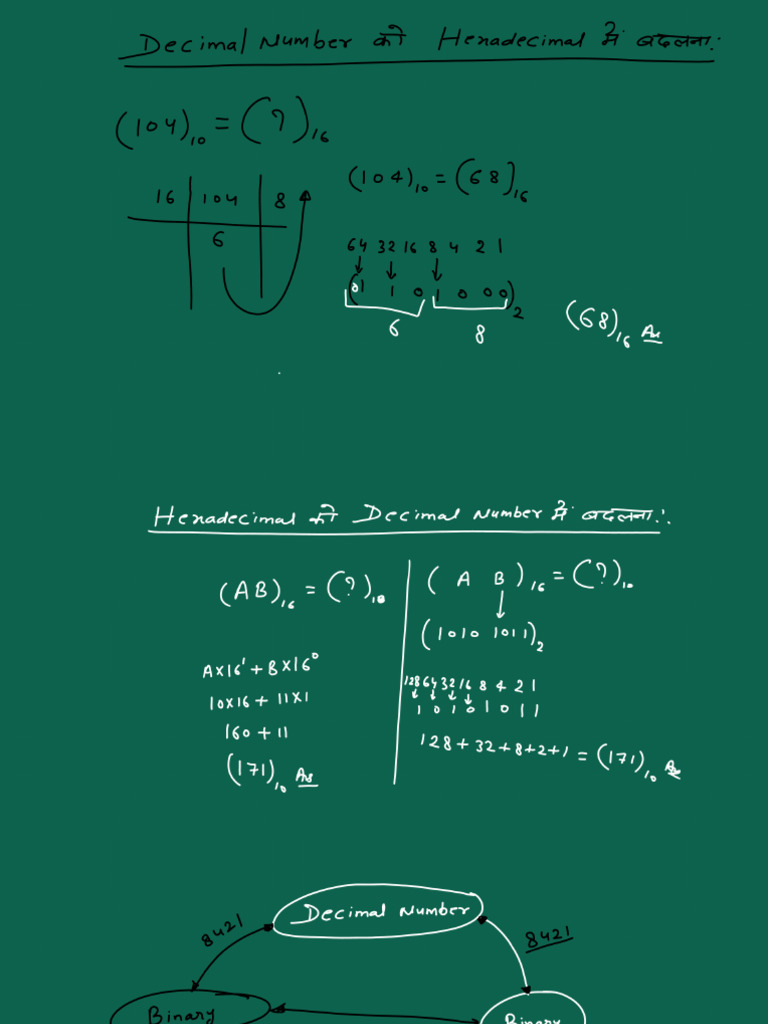 Decimal Number को Hexadecimal में बदलना:
(104)₁₀ = (?)₁₆
16 | 104 | 8
6
(104)₁₀ = (68)₁₆
64 32 16 8 4 2 1
(01 1 0 1 0 0 0)₂
6 8
(68)₁₆ Ans
Hexadecimal को Decimal Number में बदलना:
(AB)₁₆ = (?)₁₀
A×16¹ + B×16⁰
10×16 + 11×1
160 + 11
(171)₁₀ Ans
(A B)₁₆ = (?)₁₀
(1010 1011)₂
128 64 32 16 8 4 2 1
1 0 1 0 1 0 1 1
128 + 32 + 8 + 2 + 1 = (171)₁₀ Ans
Decimal Number
8421
8421
Binary
Binary